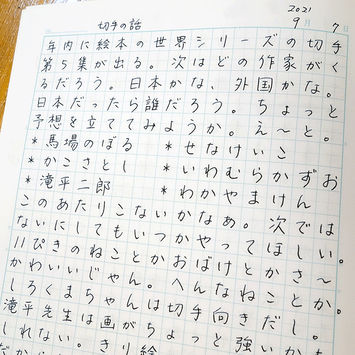 2021
9 7
切手の話
年内に絵本の世界シリーズの切手
第5集が出る。次はどの作家がく
るだろう。日本かな、外国かな。
日本だったら誰だろう。ちょっと
予想を立ててみようか。え〜と。
*馬場のぼる *せなけいこ
*かこさとし *いわむらかずお
*滝平二郎 *わかやまけん
このあたりこないかなぁ。次では
ないにしてもいつかやってほしい。
11ぴきのねことかおばけとかさ〜
かわいいじゃん。へんなねことか。
しろくまちゃんは切手向きだし。
滝平先生は画がちょっと強いか
しれない。きり絵